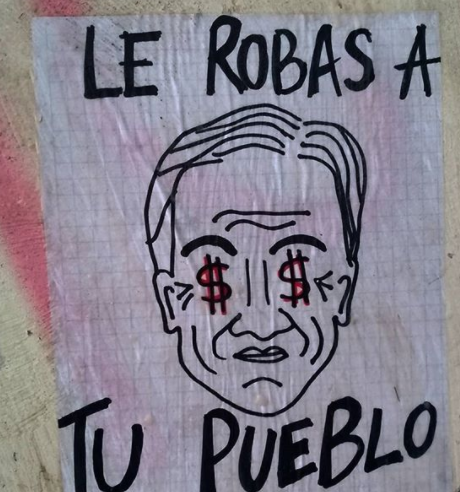 LE ROBAS A
$ $
TU PUEBLO